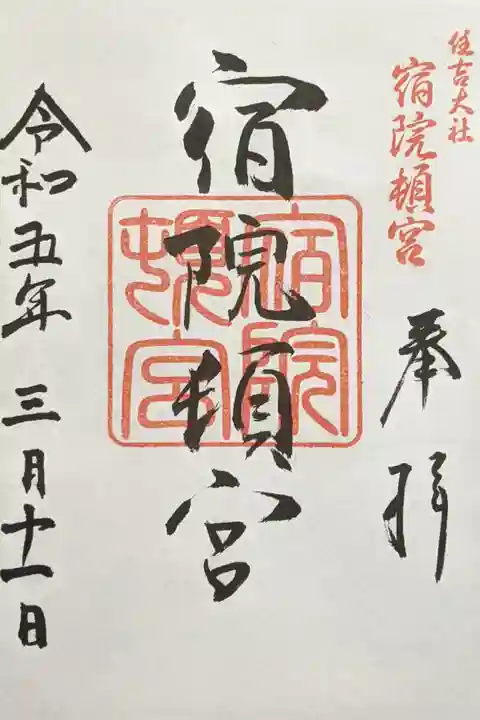 住吉大社
宿院頓宮
奉拝
宿院頓宮
宿院
頓宮
令和五年 三月十一日